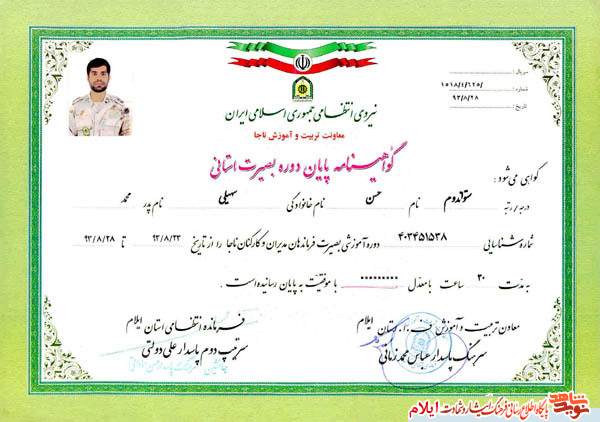 نیروی انتظامی جمهوری اسلامی ایران
معاونت تربیت و آموزش ناجا
سریال:
شماره: ۱۵۱۸/۴/۲۲۵/
تاریخ: ۹۳/۸/۲۸
گواهینامه پایان دوره بصیرت استانی
گواهی می شود:
درجه / رتبه ستواندوم نام حسن نام خانوادگی سهیلی نام پدر محمد
شماره شناسایی ۴۰۳۴۵۱۵۳۸ دوره آموزشی بصیرت فرماندهان مدیران و کارکنان ناجا را از تاریخ ۹۳/۸/۲۳ تا ۹۳/۸/۲۸
به مدت ۳۰ ساعت با معدل ********* با موفقیت به پایان رسانیده است.
معاون تربیت و آموزش ف.ا.استان ایلام
سرهنگ پاسدار عباس محمد زمانی
فرمانده انتظامی استان ایلام
سرتیپ دوم پاسدار علی دولتی
نوید شاهد پایگاه اطلاع رسانی فرهنگ ایثار و شهادت ایلام